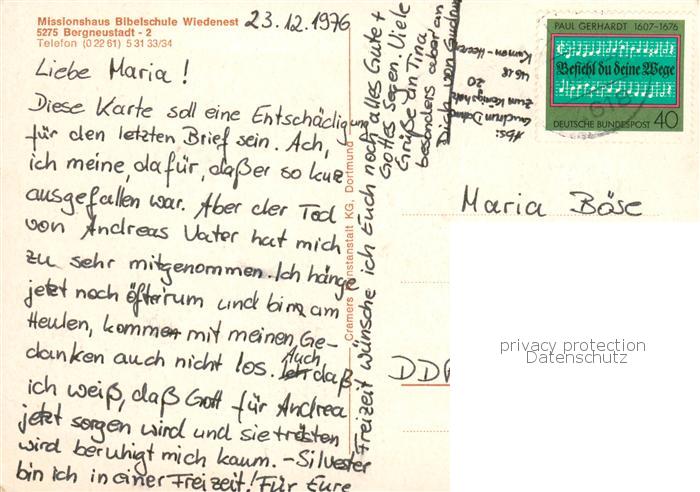 Missionshaus Bibelschule Wiedenest
5275 Bergneustadt - 2
Telefon (0 22 61) 5 31 33/34
23.12.1976
Liebe Maria!
Diese Karte soll eine Entschädigung
für den letzten Brief sein. Ach,
ich meine, dafür, daßer so kurz
ausgefallen war. Aber der Tod
von Andreas Vater hat mich
zu sehr mitgenommen. Ich hänge
jetzt noch öfter rum und bin am
Heulen, komme mit meinen Ge-
danken auch nicht los. Auch daß
ich weiß, daß Gott für Andrea
jetzt sorgen wird und sie trösten
wird beruhigt mich kaum. – Silvester
bin ich in einer Freizeit! Für Eure
Freizeit wünsche ich Euch noch alles Gute +
Gottes Segen. Viele
Grüße an Tina
besonders aber an
Dich von Gudrun
Abs:
Gudrun
20
4618 Kamen-Heeren
Cramers Kunstanstalt KG, Dortmund
PAUL GERHARDT 1607-1676
Befiehl du deine Wege
DEUTSCHE BUNDESPOST 40
618
Maria Böse
DDR
privacy protection
Datenschutz